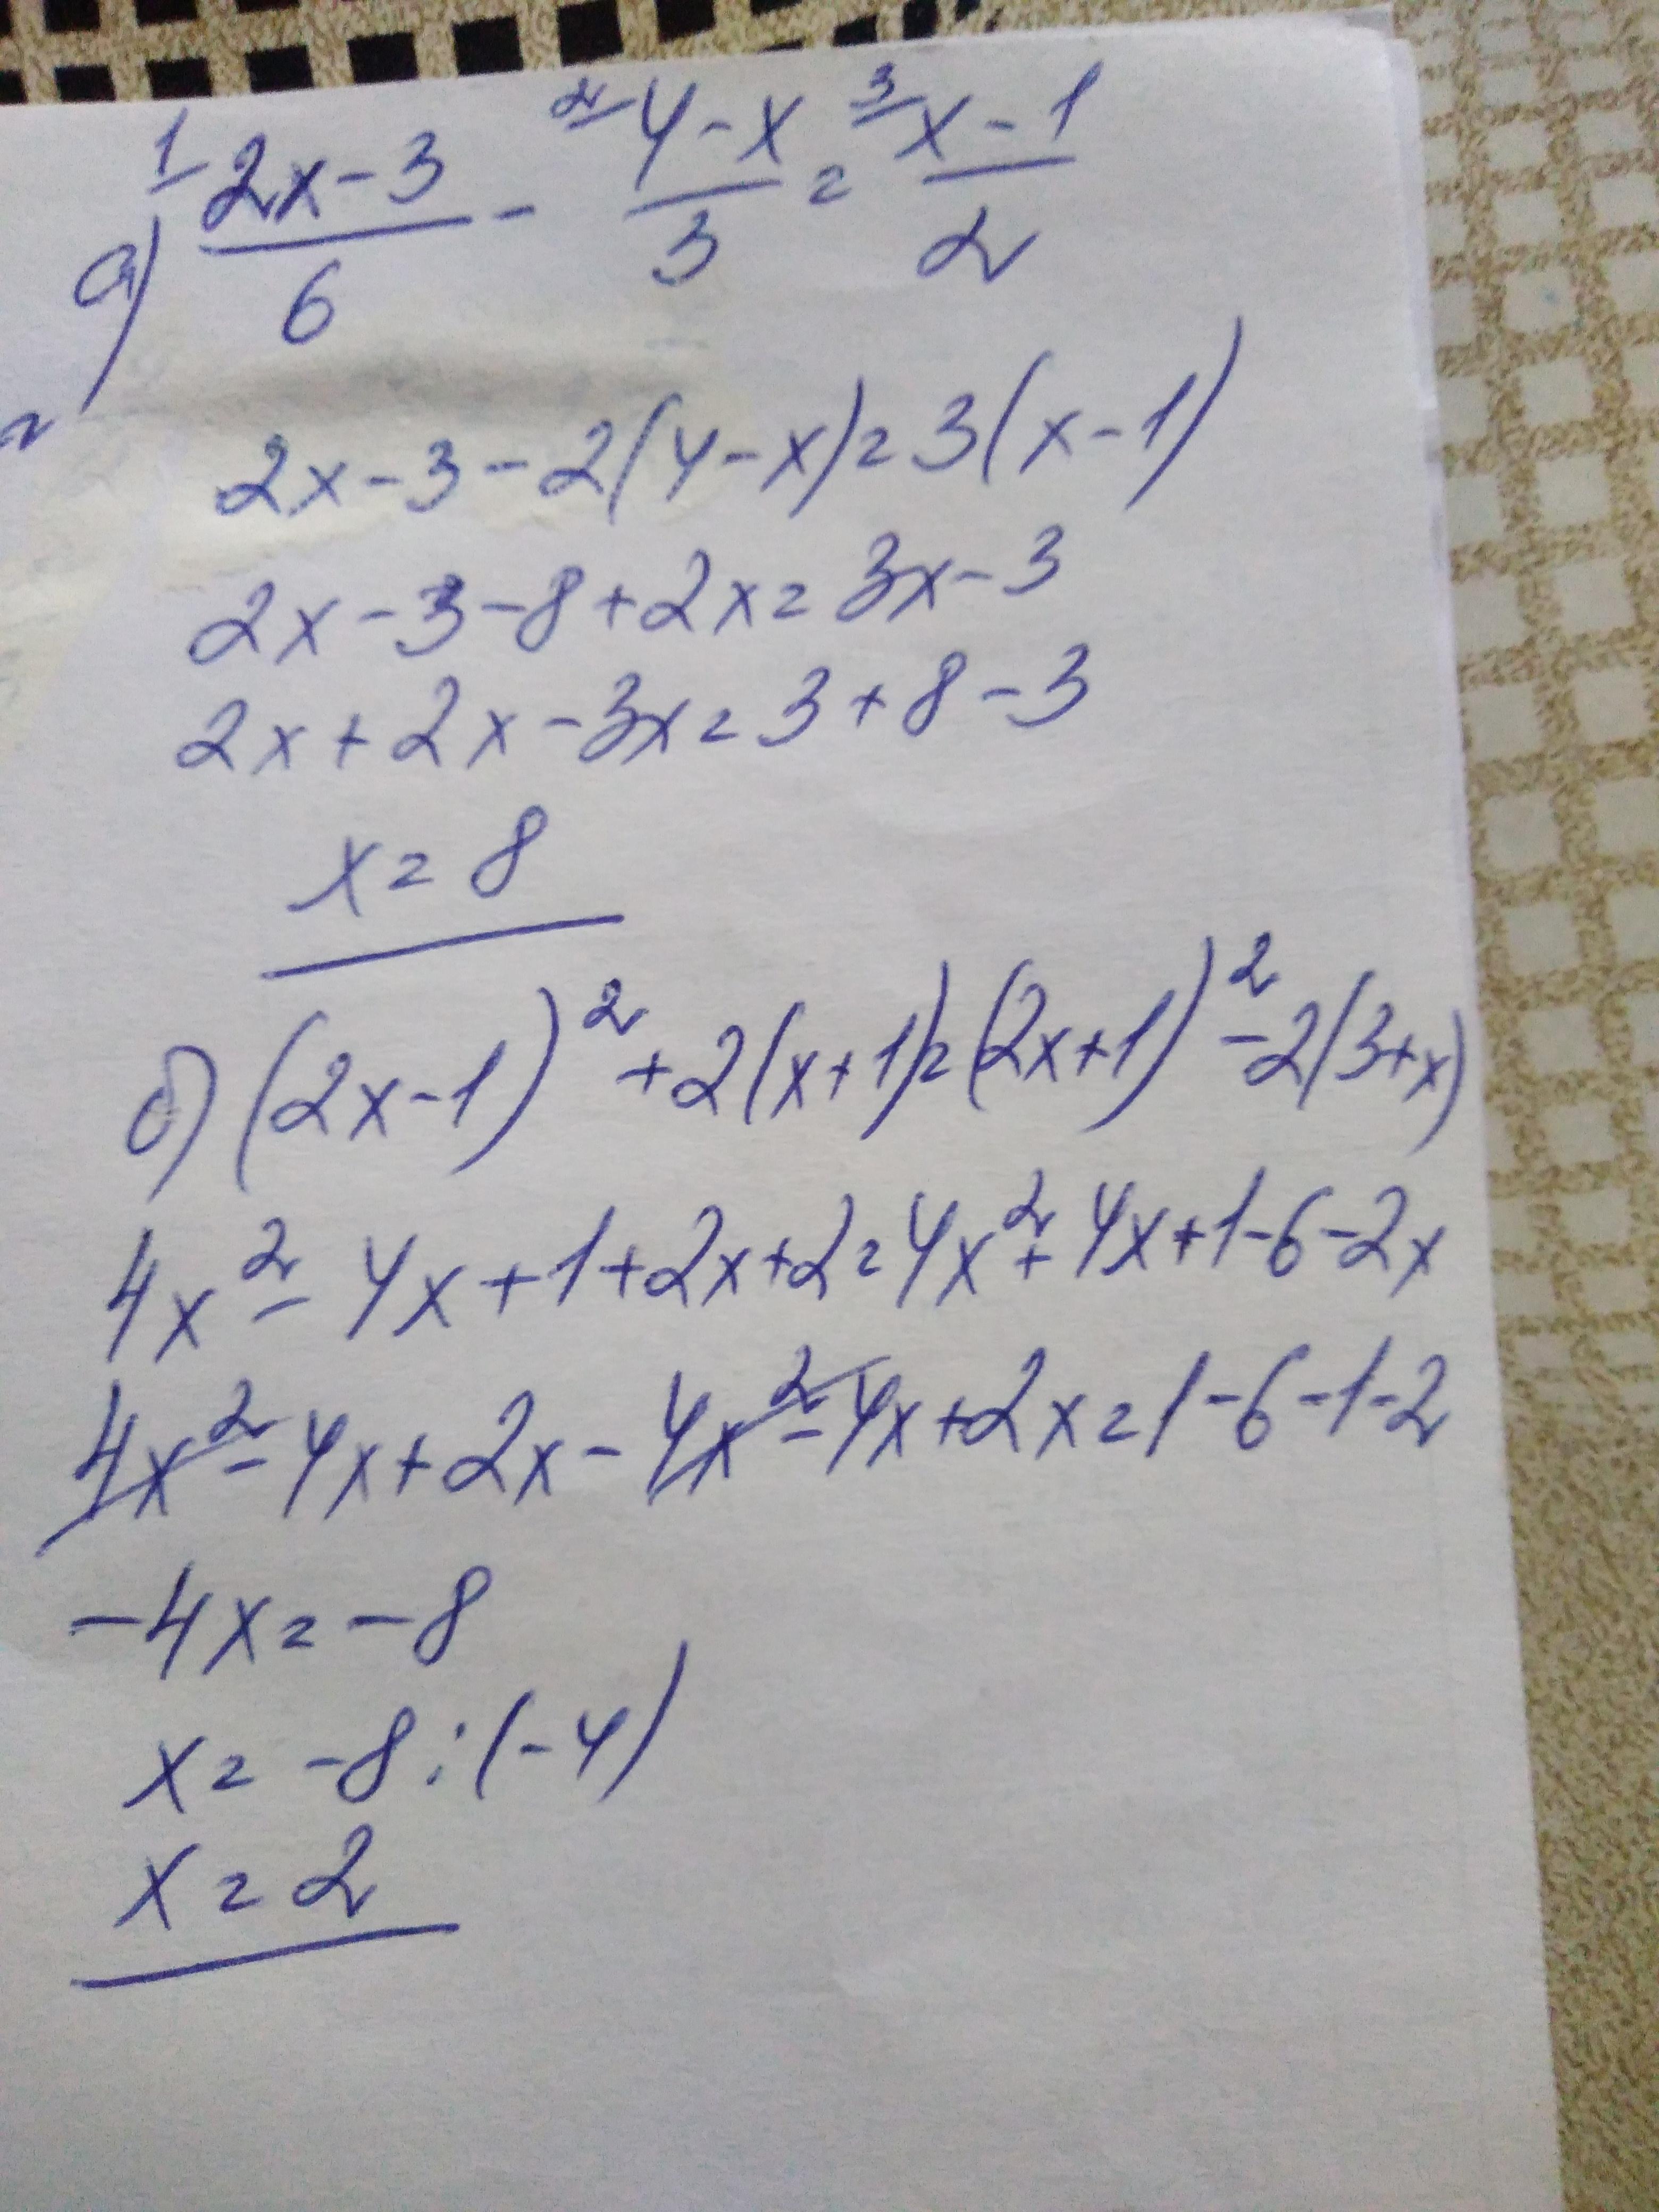 а) 1 (2x-3)/6 - 2 (4-x)/3 = 3 (x-1)/2
2x-3-2(4-x)=3(x-1)
2x-3-8+2x=3x-3
2x+2x-3x=3+8-3
x=8
б) (2x-1)²+2(x+1)=(2x+1)²-2(3+x)
4x²-4x+1+2x+2=4x²+4x+1-6-2x
4x²-4x+2x-4x²-4x+2x=1-6-1-2
-4x=-8
x=-8:(-4)
x=2